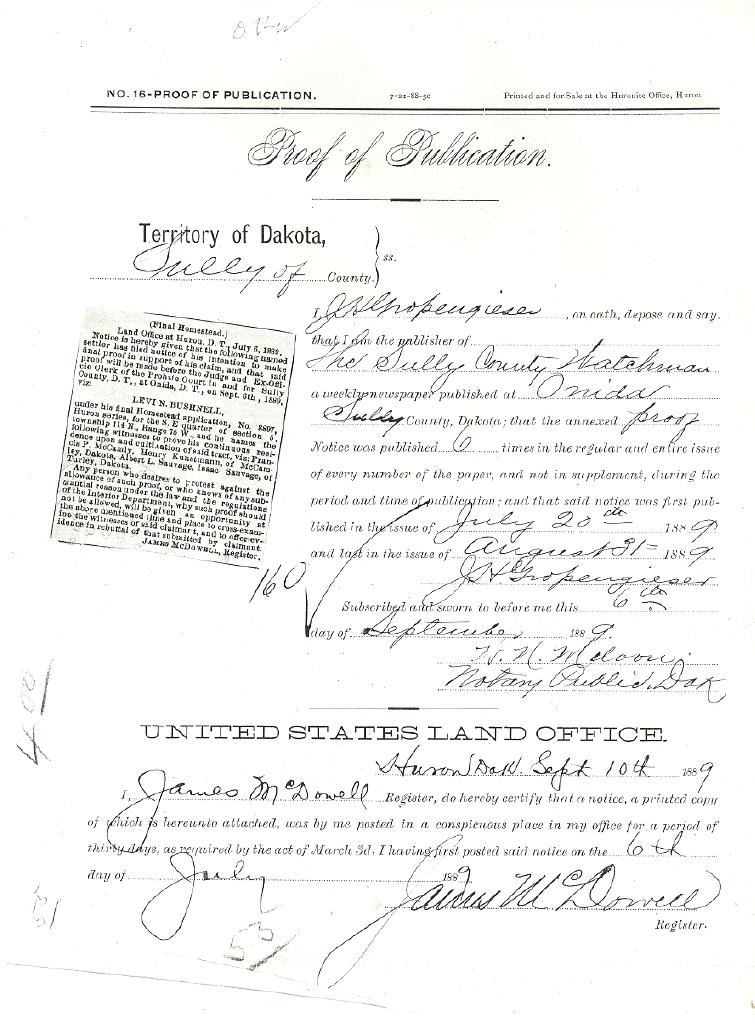 NO. 16-PROOF OF PUBLICATION. 7-21-88-50 Printed and for Sale at the Huronite Office, Huron
Proof of Publication.
Territory of Dakota,
Sully of County. } ss.
(Final Homestead.)
Land Office at Huron, D. T., July 6, 1889.
Notice is hereby given that the following named
settler has filed notice of his intention to make
final proof in support of his claim, and that said
proof will be made before the Judge and Ex-Offi-
cio Clerk of the Probate Court in and for Sully
County, D. T., at Onida, D. T., on Sept. 6th, 1889,
viz:
LEVI N. BUSHNELL,
under his final Homestead application, No. 8897,
Huron series, for the S. E quarter of section 5,
township 114 N., Range 76 W., and he names the
following witnesses to prove his continuous resi-
dence upon and cultivation of said tract, viz: Fran-
cis P. McCamly, Henry Kunzemann, of McCam-
ley, Dakota, Albert L. Sauvage, Isaac Sauvage, of
Turley, Dakota.
Any person who desires to protest against the
allowance of such proof, or who knows of any sub-
stantial reason under the law and the regulations
of the Interior Department, why such proof should
not be allowed, will be given an opportunity at
the above mentioned time and place to cross-exam-
ine the witnesses of said claimant, and to offer ev-
idence in rebuttal of that submitted by claimant.
JAMES MCDOWELL, Register.
160
I, J H Gropengieser, on oath, depose and say.
that I am the publisher of
The Sully County Watchman
a weekly newspaper published at Onida
Sully County, Dakota; that the annexed proof
Notice was published 6 times in the regular and entire issue
of every number of the paper, and not in supplement, during the
period and time of publication; and that said notice was first pub-
lished in the issue of July 26th 1889
and last in the issue of August 31st 1889
J H Gropengieser
Subscribed and sworn to before me this 6th
day of September 1889.
Notary Public, Dak
UNITED STATES LAND OFFICE.
Huron Dak. Sept 10th 1889
I, James McDowell Register, do hereby certify that a notice, a printed copy
of which is hereunto attached, was by me posted in a conspicuous place in my office for a period of
thirty days, as required by the act of March 3d, I having first posted said notice on the 6th
day of July 1889
James McDowell
Register.
53